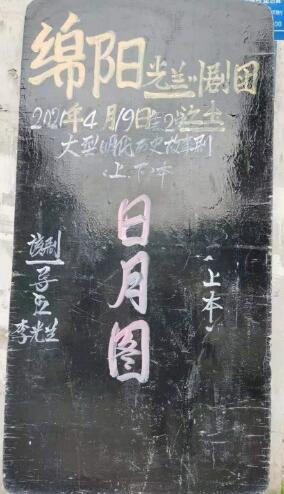 绵阳光兰川剧团
2021年4月19日
大型明代历史故事剧
(上.下)本
日月图
(上本)
该剧
导
李光生